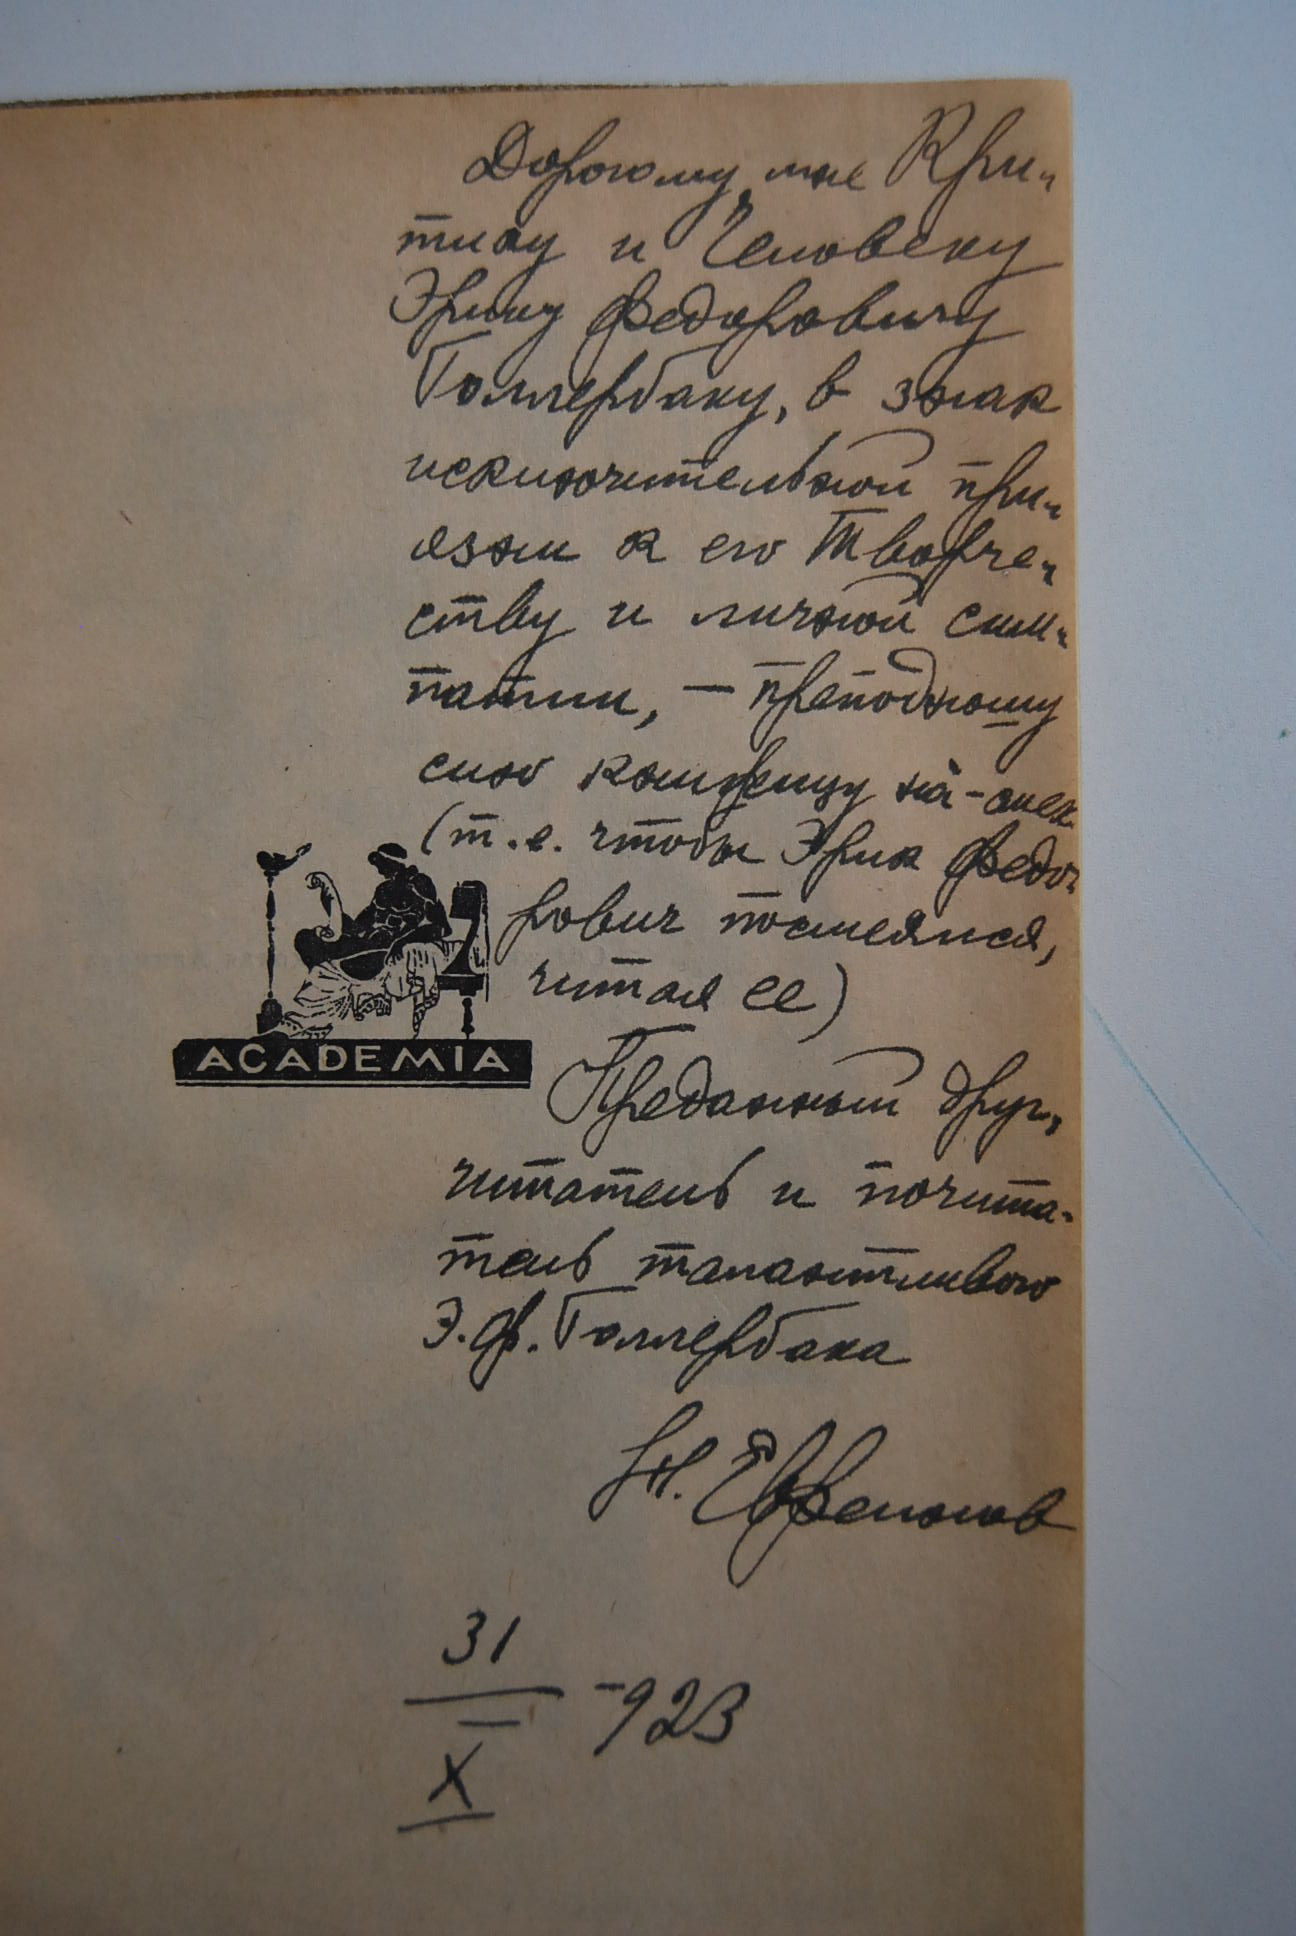 Дорогому мне Кри-
тику и Человеку
Эрику Федоровичу
Голлербаху, в знак
исключительной при-
язни к его Творче-
ству и личной сим-
патии, — преподношу
сию книжицу на-смех
(т.е. чтобы Эрик Федо-
рович посмеялся,
читая ее)
ACADEMIA
Преданный друг,
читатель и почита-
тель талантливого
Э. Ф. Голлербаха
Н. Евреинов
31
X
-923